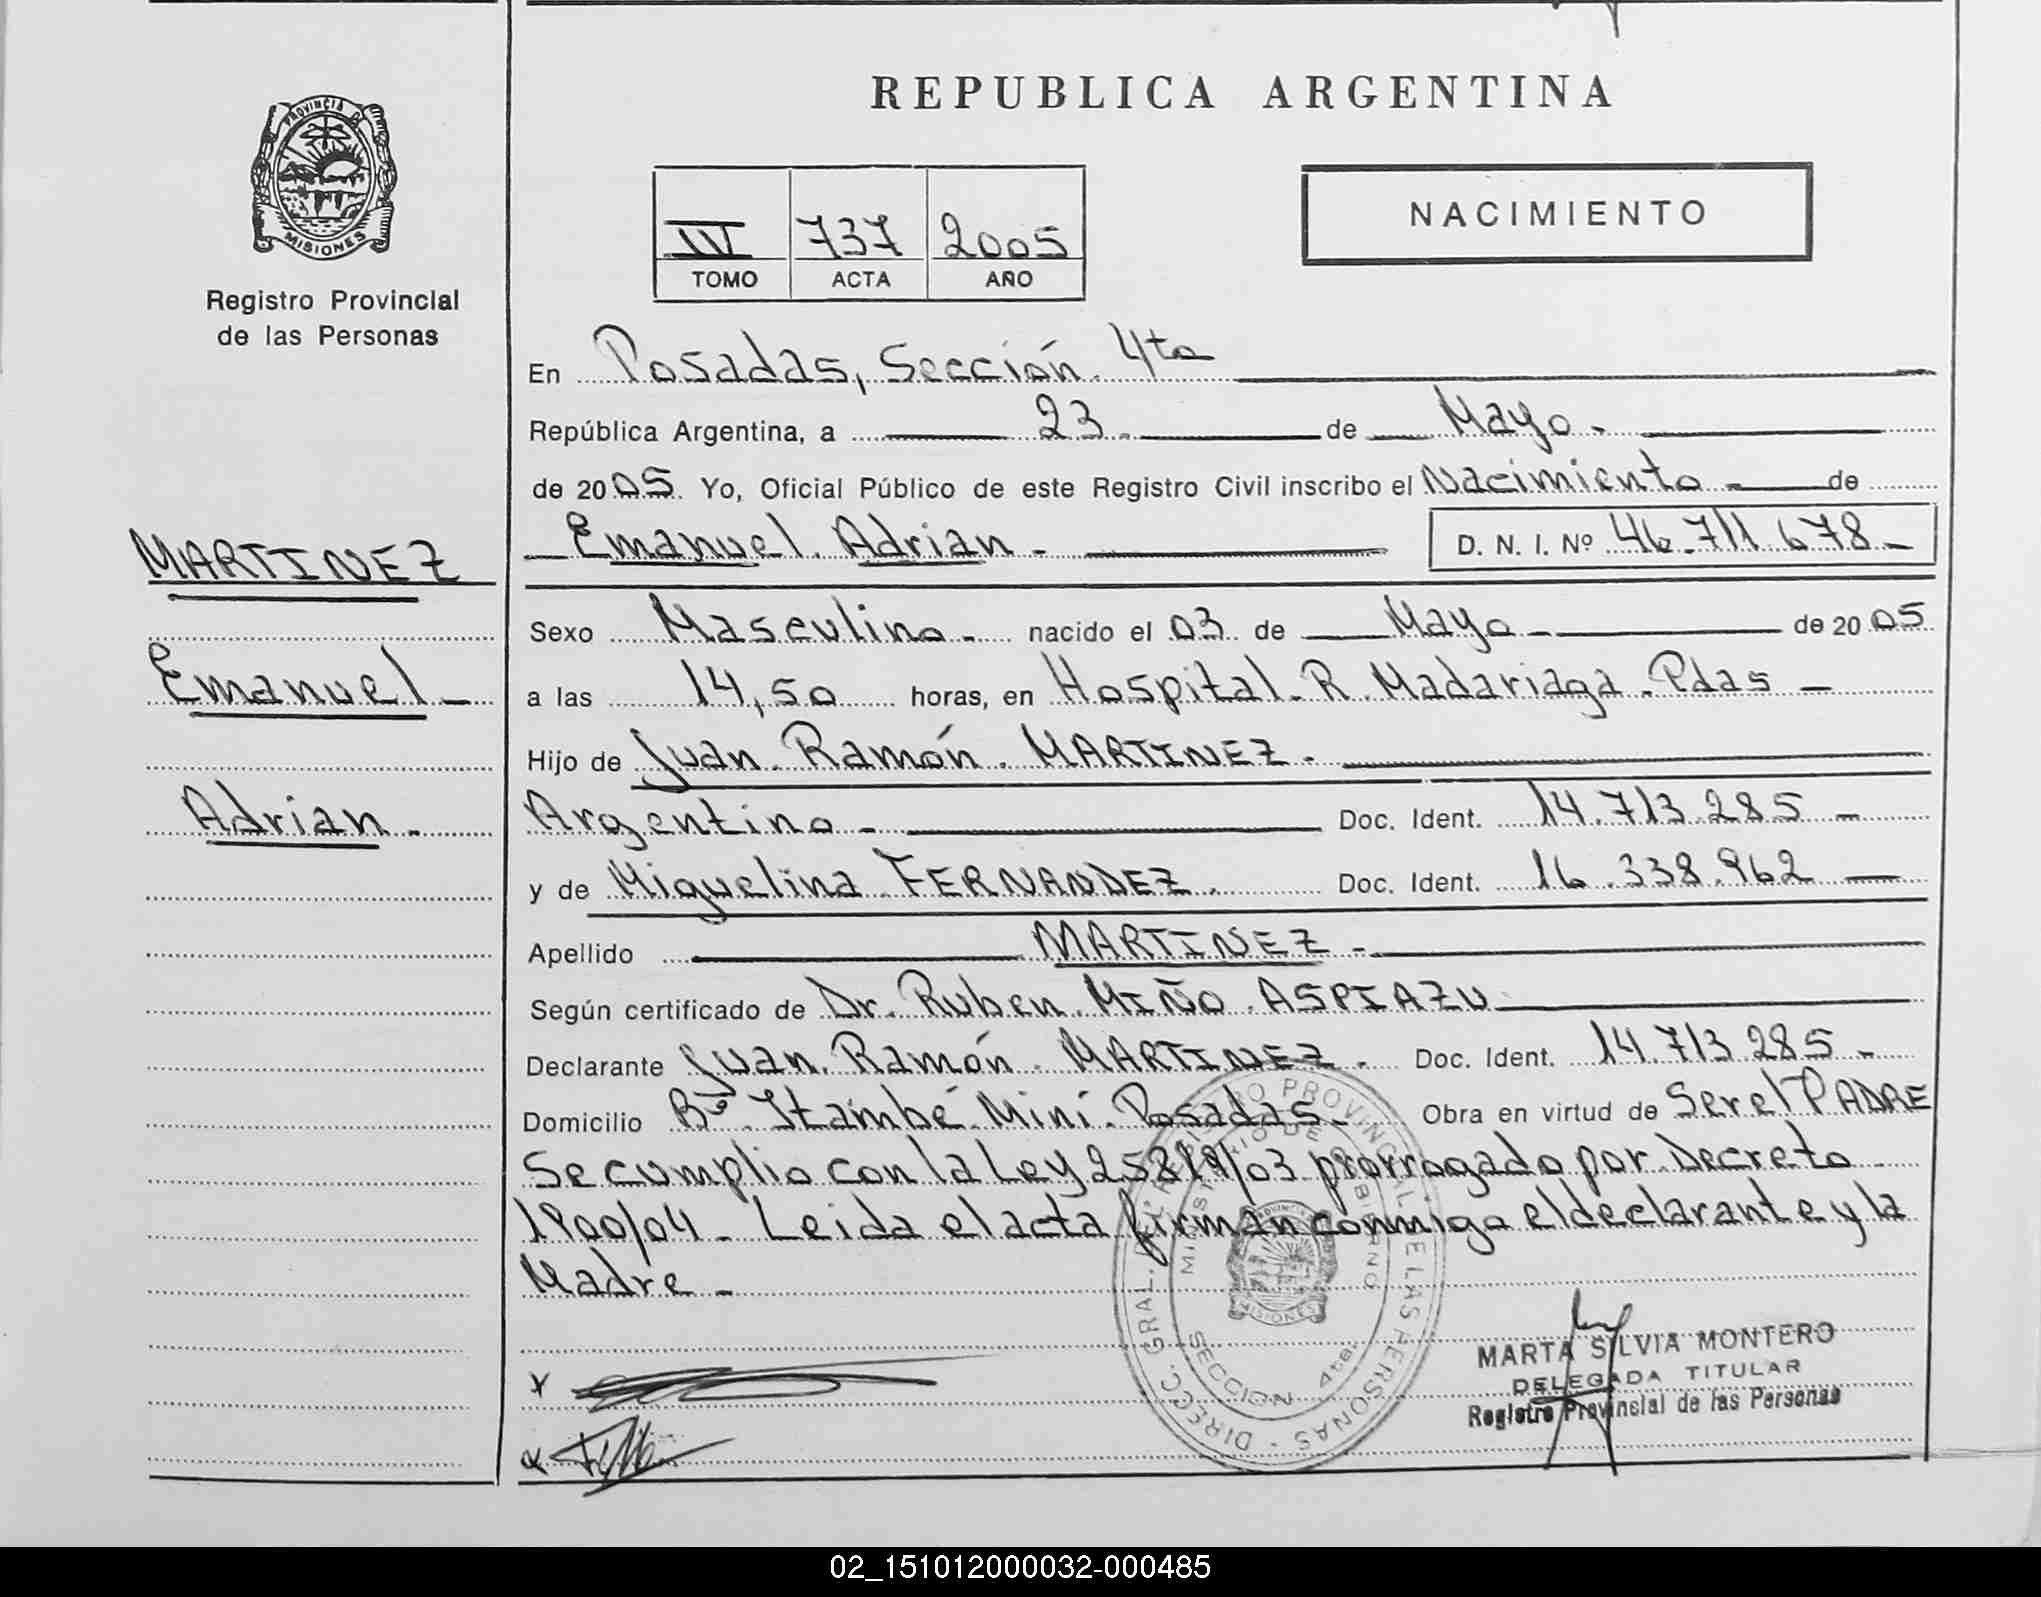 REPUBLICA ARGENTINA
PROVINCIA DE
MISIONES
Registro Provincial
de las Personas
IV 737 2005
TOMO ACTA AÑO
NACIMIENTO
En Posadas, Sección 4ta
República Argentina, a 23 de Mayo
de 2005 Yo, Oficial Público de este Registro Civil inscribo el Nacimiento de
Emanuel Adrian D. N. I. Nº 46.711.678
MARTINEZ
Emanuel
Adrian
Sexo Masculino nacido el 03 de Mayo de 2005
a las 14,50 horas, en Hospital R. Madariaga Pdas
Hijo de Juan Ramón MARTINEZ
Argentino Doc. Ident. 14.713.285
y de Miguelina FERNANDEZ Doc. Ident. 16.338.962
Apellido MARTINEZ
Según certificado de Dr. Ruben MIÑO ASPIAZU
Declarante Juan Ramón MARTINEZ Doc. Ident. 14.713.285
Domicilio Bº Itambé Miní Posadas Obra en virtud de Ser el PADRE
Se cumplio con la Ley 25819/03 prorrogado por Decreto
1900/04 - Leida el acta firman conmigo el declarante y la
Madre -
DIRECC. GRAL. DEL REGISTRO PROVINCIAL DE LAS PERSONAS
MINISTERIO DE GOBIERNO
MISIONES
SECCION 4ta.
MARTA SILVIA MONTERO
DELEGADA TITULAR
Registro Provincial de las Personas
02_151012000032-000485